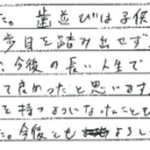 た。歯並びは子供
歩目を踏み出せず
、今後の長い人生で
て良かったと思います
を持つようになったことも
た。今後とも よろし